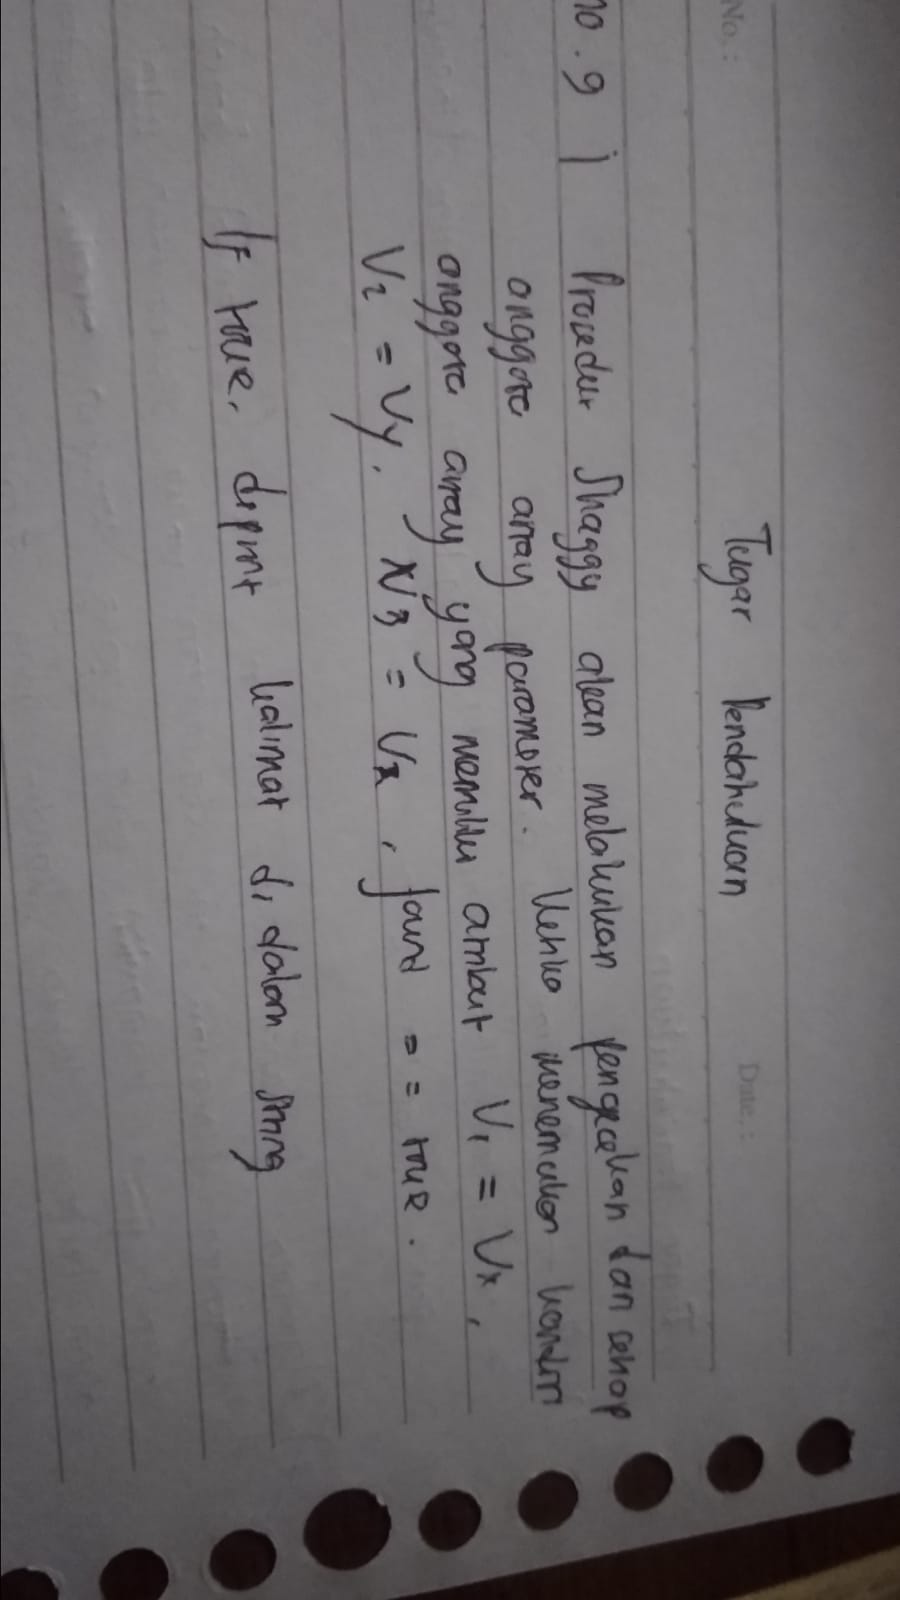 No.:
Date.:
Tugas Pendahuluan
no. 9 ) Prosedur Shaggy akan melakukan pengecekan dan setiap
anggota array parameter. Ketika menemukan kondisi
anggota array yang memiliki atribut V1 = Vx,
V2 = Vy, V3 = Vz, found == true.
If true, diprint kalimat di dalam string